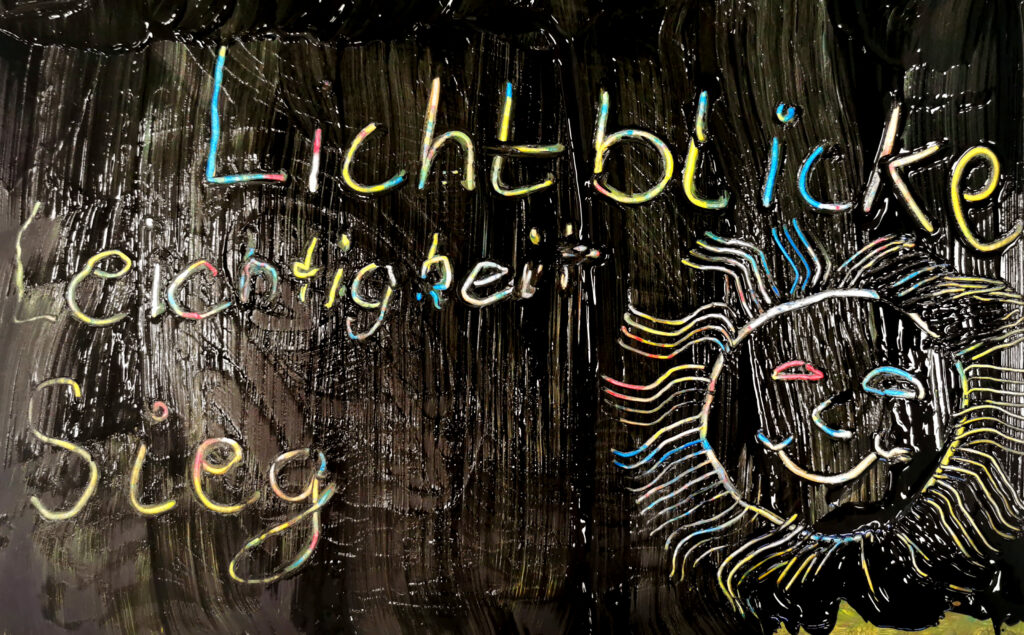 Lichtblicke
Leichtigkeit
Sieg